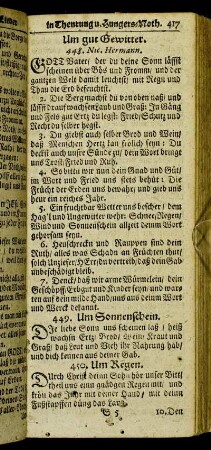 in Theurung u. Hungers-Noth. 417
Um gut Gewitter.
448. Nic. Hermann.
GOtt Vater, der du deine Sonn läßst
scheinen über Bös und Fromm, und der
gantzen Welt damit leuchtst; mit Regn und
Thau die Erd befeuchtst.
2. Die Berg machst du von oben naß, und
läßst drauf wachsen Laub und Graß: In Gäng
und Fels gut Ertz du legst: Fried, Schutz und
Recht du selber hegst.
3. Du giebst auch selber Brod und Wein,
daß Menschen Hertz kan frölich seyn: Du
deckst auch unser Sünde zu, dein Wort bringt
uns Trost, Fried und Ruh.
4. So bitten wir nun dein Gnad und Güt,
im Wort und Fried uns stets behüt: Die
Frücht der Erden uns bewahr, und gieb uns
heur ein reiches Jahr.
5. Ein fruchtbar Wetter uns bescher, dem
Hagl und Ungewitter wehr, Schnee, Regen,
Wind und Sonnenschein alleit deinem Wort
gehorsam seyn.
6. Heuschrecken und Rauppen sind dein
Ruth, alles was Schaden an Früchten thut
solch Unziefer, HErr, du vertreib, daß dein Gab
unbeschädigt bleib.
7. Denck, daß wir arme Würmelein, dein
Geschöpf, Erbgut und Kinder seyn, und warten
auf dein milde Hand, aus deinem Wort
und Werck bekannt.
449. Um Sonnenschein.
Die liebe Sonn uns scheinen laß, heiß
wachsen Ertz, Brodt, Wein, Kraut und
Graß, daß Leut und Vieh ihr Nahrung hab,
und dich kennen aus deiner Gab.
450. Um Regen.
Durch Christ deinn Sohn hör unser Bitt,
theil uns ein gnädigen Regen mit, und
krön das Jahr mit deiner Hand, mit deinn
Fußstapffen düng das Land.
S 5 10. Den